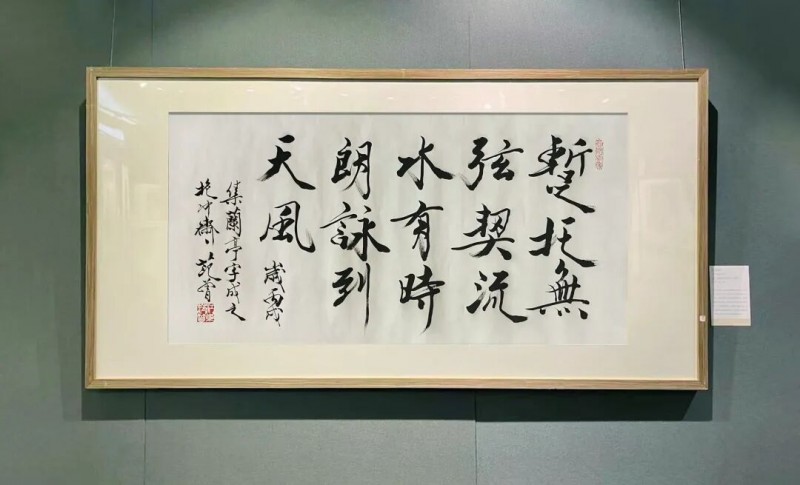 蹔托無
弦契流
水有時
朗詠列
天風 歲丙戌
集蘭亭字成之
抱冲齋 范曾